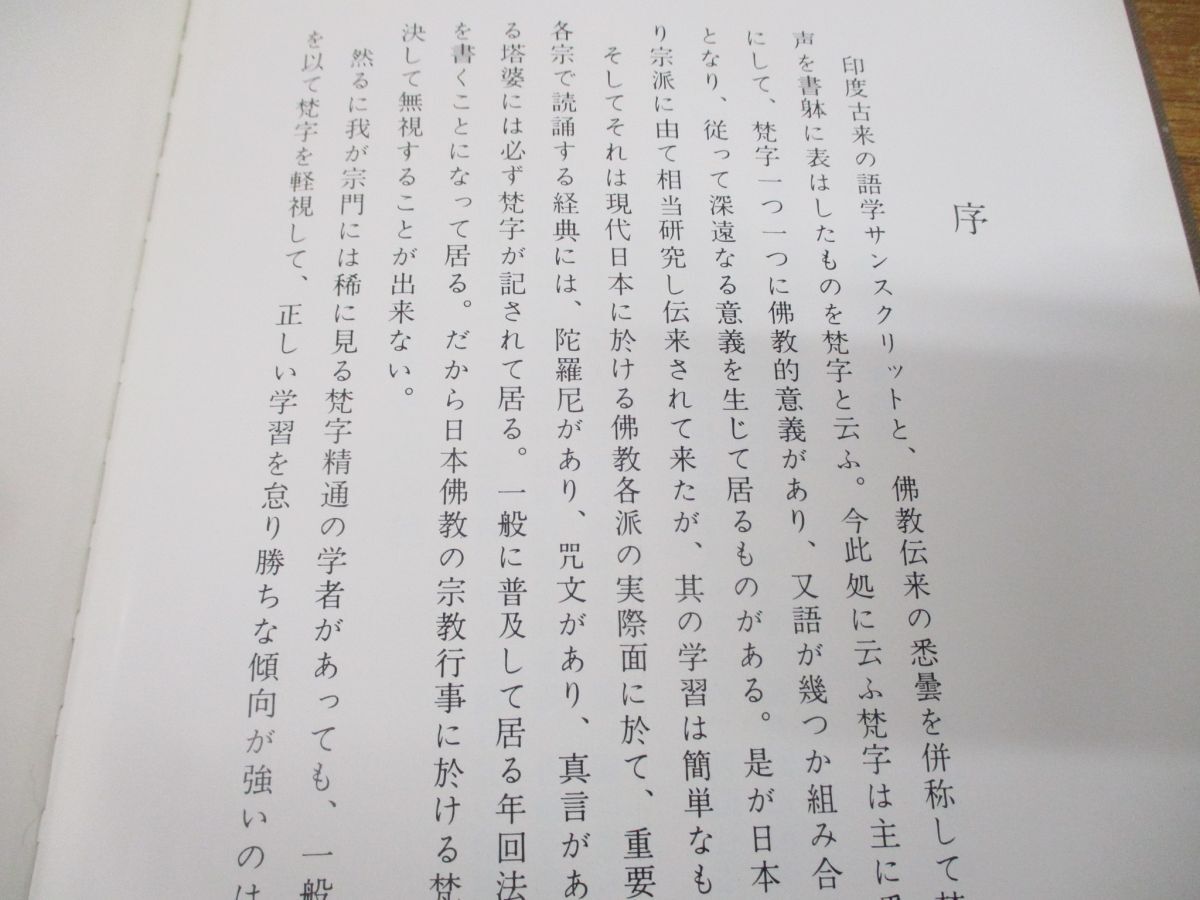 序
印度古来の語学サンスクリットと、佛教伝来の悉曇を併称して
声を書躰に表はしたものを梵字と云ふ。今此処に云ふ梵字は主に
にして、梵字一つ一つに佛教的意義があり、又語が幾つか組み合
となり、従って深遠なる意義を生じて居るものがある。是が日本
り宗派に由て相当研究し伝来されて来たが、其の学習は簡単なも
そしてそれは現代日本に於ける佛教各派の実際面に於て、重要
各宗で読誦する経典には、陀羅尼があり、咒文があり、真言があ
る塔婆には必ず梵字が記されて居る。一般に普及して居る年回法
を書くことになって居る。だから日本佛教の宗教行事に於ける梵
決して無視することが出来ない。
然るに我が宗門には稀に見る梵字精通の学者があっても、一般
を以て梵字を軽視して、正しい学習を怠り勝ちな傾向が強いのは